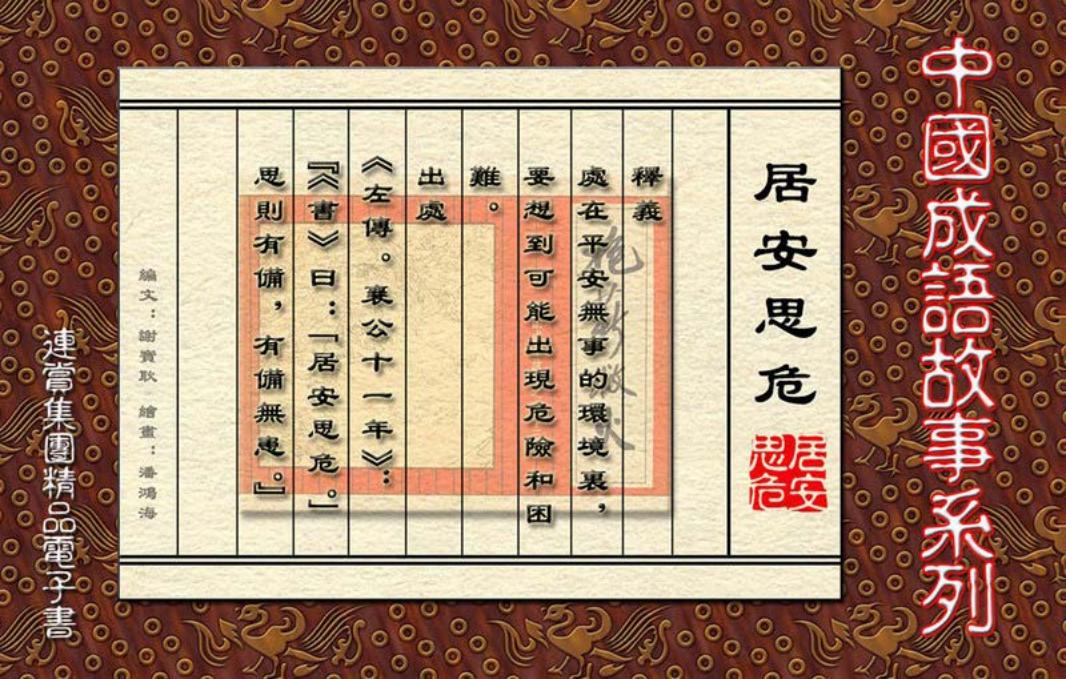 中國成語故事系列
居安思危
居安思危
釋義
處在平安無事的環境裏，
要想到可能出現危險和困
難。
出處
《左傳。襄公十一年》：
『《書》曰：「居安思危。」
思則有備，有備無患。』
編文：謝寶耿 繪畫：潘鴻海
連賞集團精品電子書